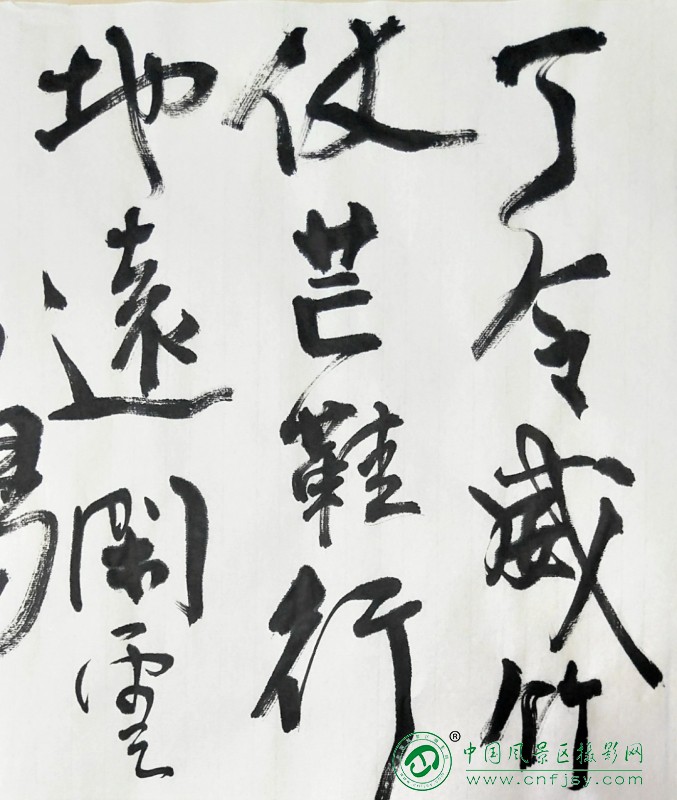 丁令威竹
仗芒鞋行
地遠閑雲
®中国风景区摄影网
www.cnfjsy.com